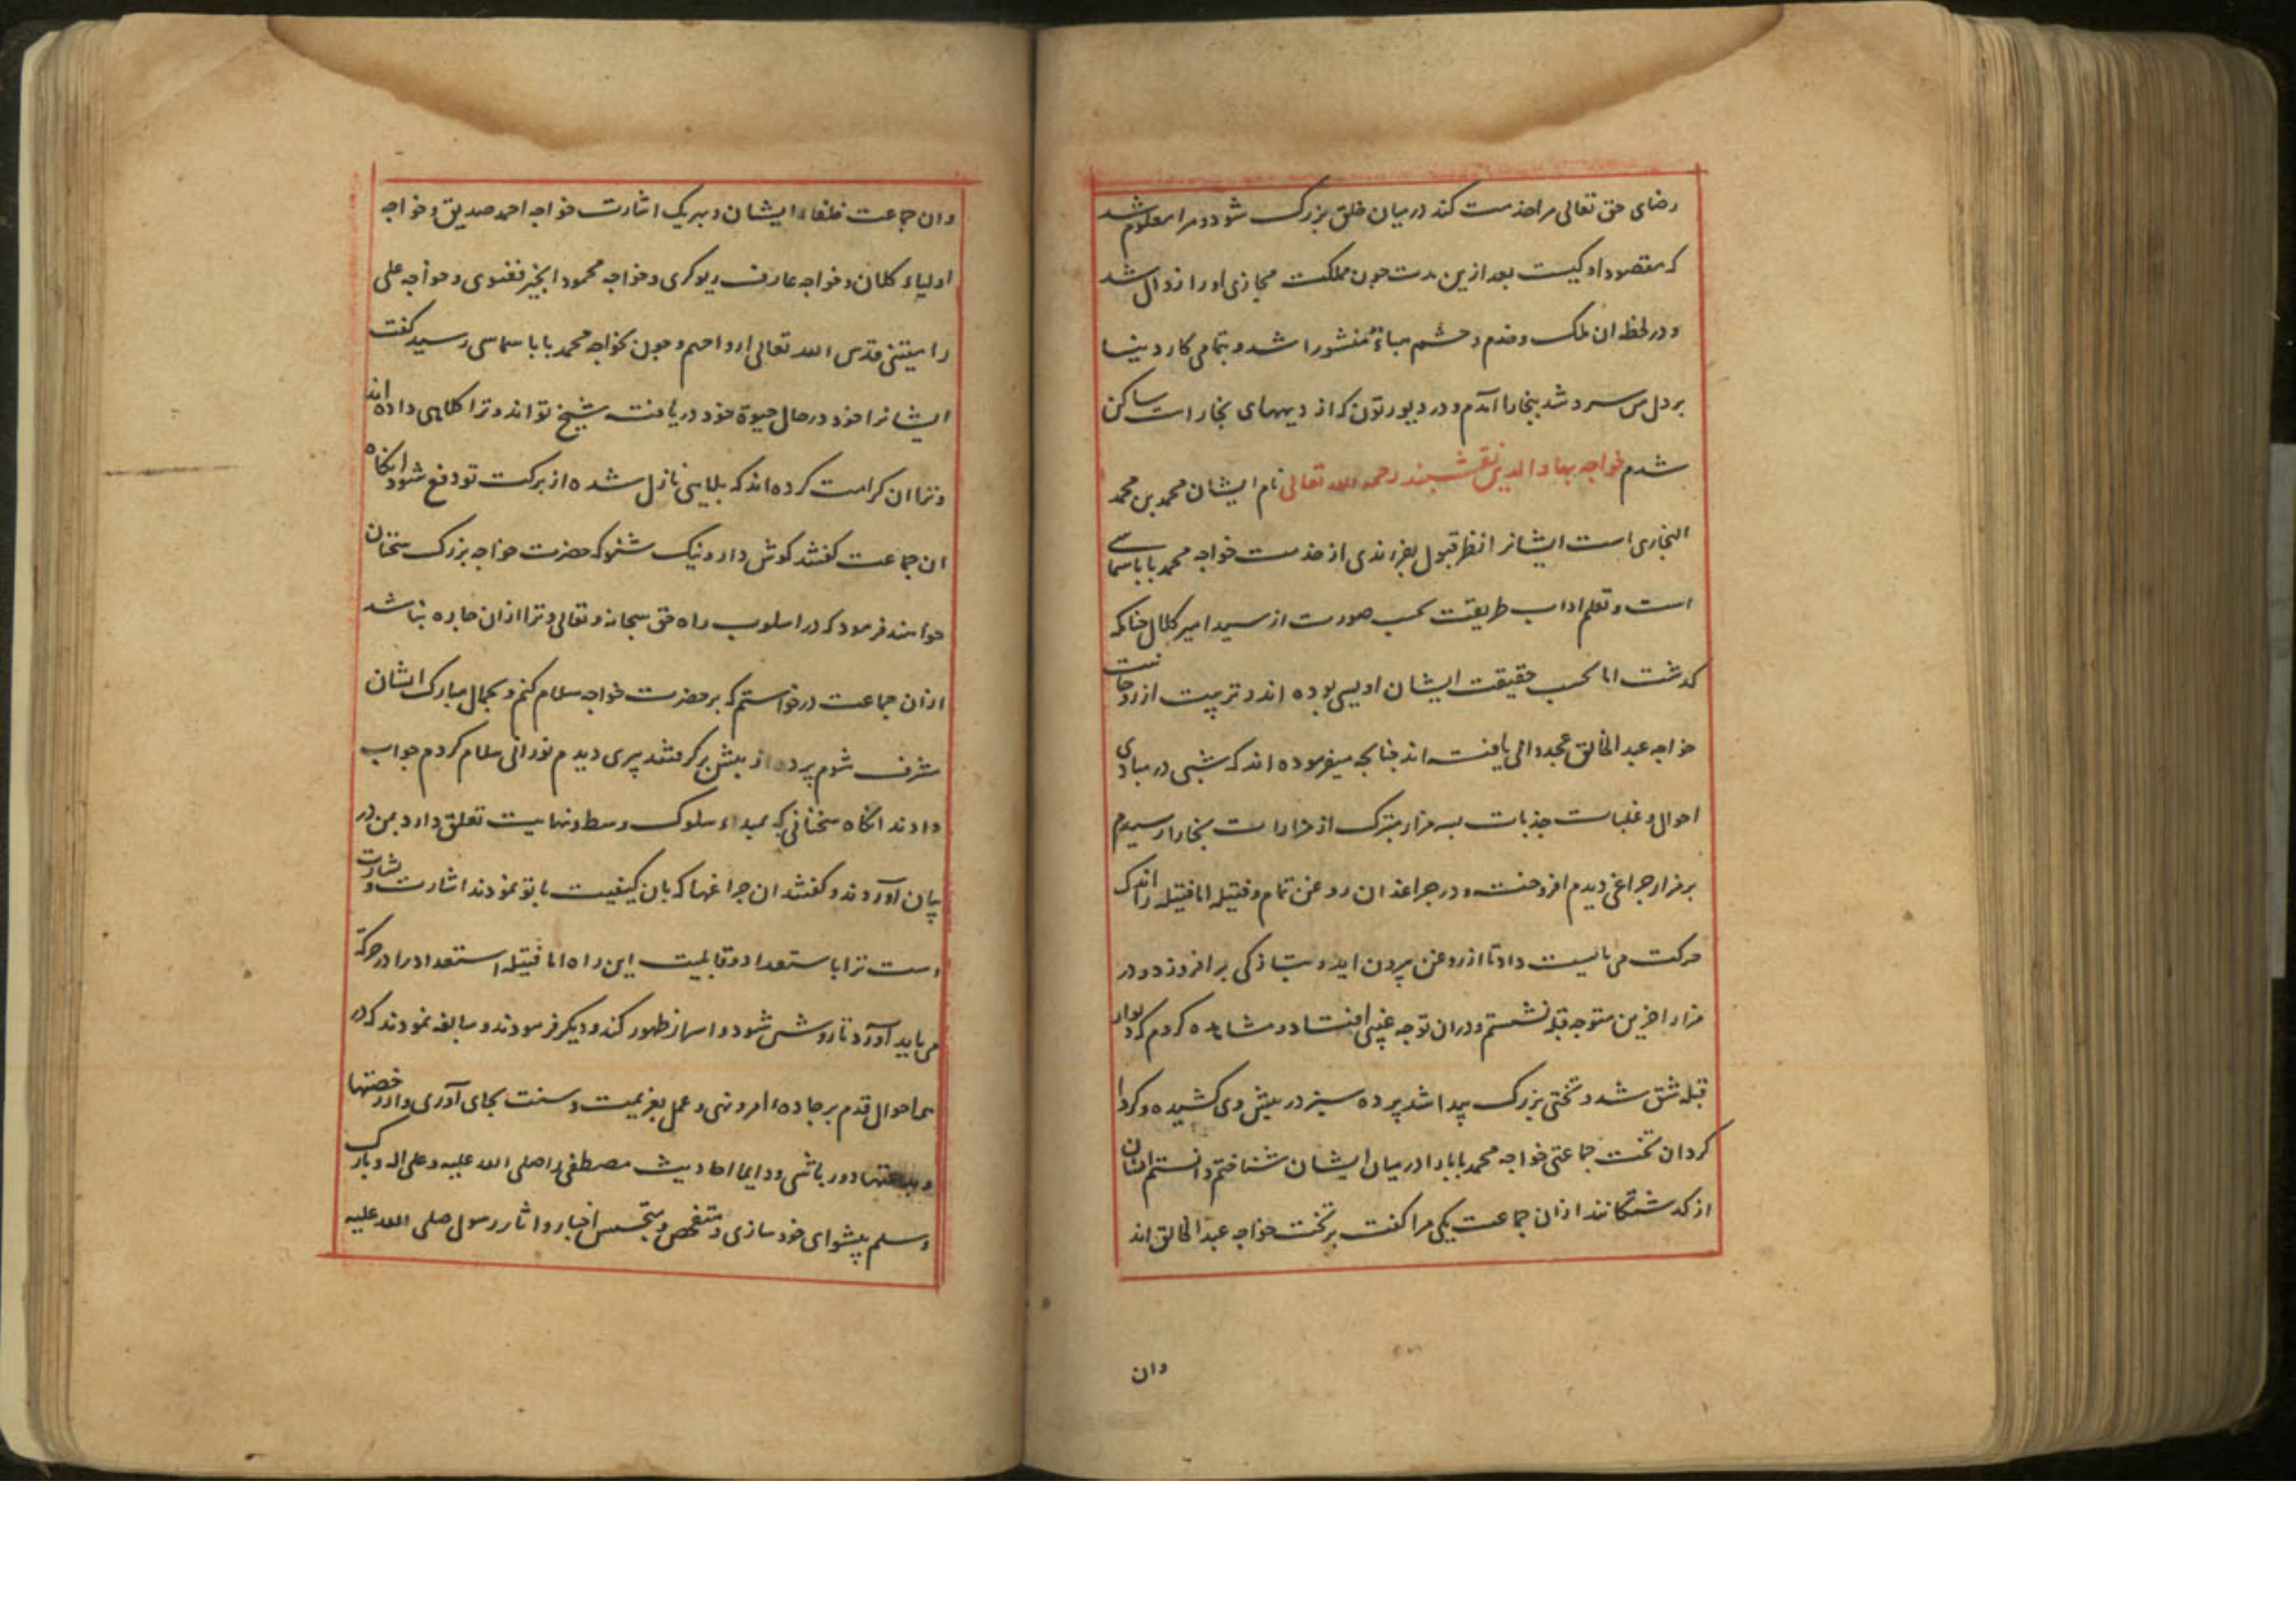 رضای حق تعالی مرا خدمت کند در میان خلق بزرک شود و مرا معلوم شد
که مقصود او کیست بعد ازین مدت جون مملکت مجازی او را زوال شد
و در لحظه ان ملک و خدم و حشم هباءً منثورا شد و بتمامی کار دینا
بر دل من سرد شد ببخارا آمدم و در دیورتون که از دیههای بخارا است ساکن
شدم خواجه بهاء الدین نقشبند رحمه الله تعالی نام ایشان محمد بن محمد
البخاری است ایشانرا نظر قبول بفرزندی از خدمت خواجه محمد بابا سماسی
است و تعلم اداب طریقت بحسب صورت از سید امیر کلال جنانکه
کذشت اما بحسب حقیقت ایشان اویسی بوده اند و تربیت از روحانیت
خواجه عبد الخالق غجدوانی یافته اند جنانجه میفرموده اند که شبی در مبادی
احوال و غلبات جذبات بسه مزار متبرک از مزارات بخارا رسیدم
بر هر مزار جراغی دیدم افروخته و در جراغدان روغن تمام و فتیله اما فتیله را اندک
حرکت می بایست داد تا از روغن بیرون اید و بتازکی بر افروزد و در
مزار اخرین متوجه قبله نشستم و دران توجه غیبتی افتاد و مشاهده کردم که دیوار
قبله شق شد و تختی بزرک پیدا شد پرده سبز در پیش وی کشیده و کردا
کرد ان تخت جماعتی خواجه محمد بابا را در میان ایشان شناختم دانستم که ایشان
از کذشتکانند ازان جماعت یکی مرا کفت بر تخت خواجه عبد الخالق اند
وان
وان جماعت خلفاء ایشان و بهریک اشارت خواجه احمد صدیق و خواجه
اولیاء کلان و خواجه عارف ریوکری و خواجه محمود انجیر فغنوی و خواجه علی
رامیتنی قدس الله تعالی ارواحهم و جون بخواجه محمد بابا سماسی رسید کفت
ایشانرا خود در حال حیوة خود دریافته شیخ تو اند و ترا کلاهی داده اند
و ترا ان کرامت کرده اند که بلایی نازل شده از برکت تو دفع شود انکاه
ان جماعت کفتند کوش دار و نیک شنو که حضرت خواجه بزرک سخنان
خواهند فرمود که در اسلوب راه حق سبحانه و تعالی و ترا ازان جاره نباشد
ازان جماعت درخواستم که بر حضرت خواجه سلام کنم و بجمال مبارک ایشان
مشرف شوم پرده از پیش برکرفتند پیری دیدم نورانی سلام کردم جواب
دادند انکاه سخنانی که بمبداء سلوک و سط و نهایت تعلق دارد بمن در
بیان آوردند و کفتند ان جراغها که بان کیفیت با تو نمودند اشارت و بشارت
است ترا باستعداد و قابلیت این راه اما فتیله استعداد را در حرکة
می باید آورد تا روشن شود و اسرار ظهور کند و دیکر فرمودند و مبالغه نمودند که در
همه احوال قدم بر جاده امر و نهی و عمل بعزیمت و سنت بجای آوری و از رخصتها
و بدعتها دور باشی و دایما احادیث مصطفی را صلی الله علیه و علی اله و بارک
و سلم پیشوای خود سازی و متفحص و متجسس اخبار و اثار رسول صلی الله علیه